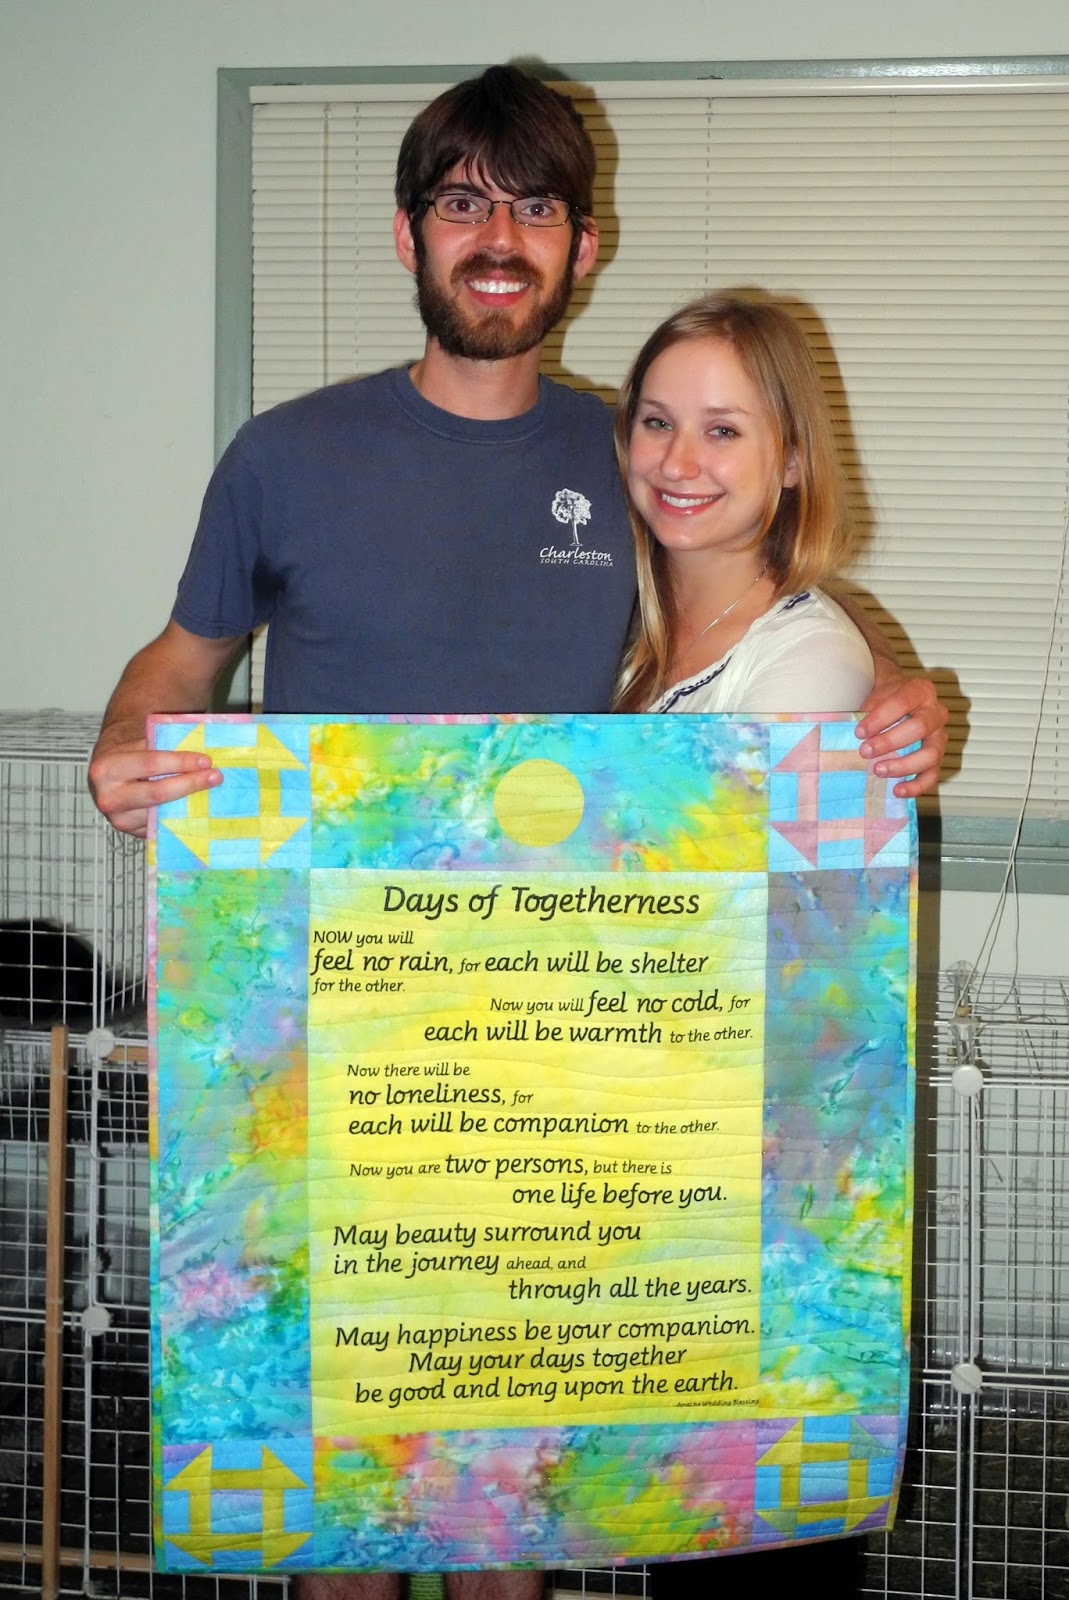 Charleston
SOUTH CAROLINA
Days of Togetherness
NOW you will
feel no rain, for each will be shelter
for the other.
Now you will feel no cold, for
each will be warmth to the other.
Now there will be
no loneliness, for
each will be companion to the other.
Now you are two persons, but there is
one life before you.
May beauty surround you
in the journey ahead, and
through all the years.
May happiness be your companion.
May your days together
be good and long upon the earth.
-Apache Wedding Blessing